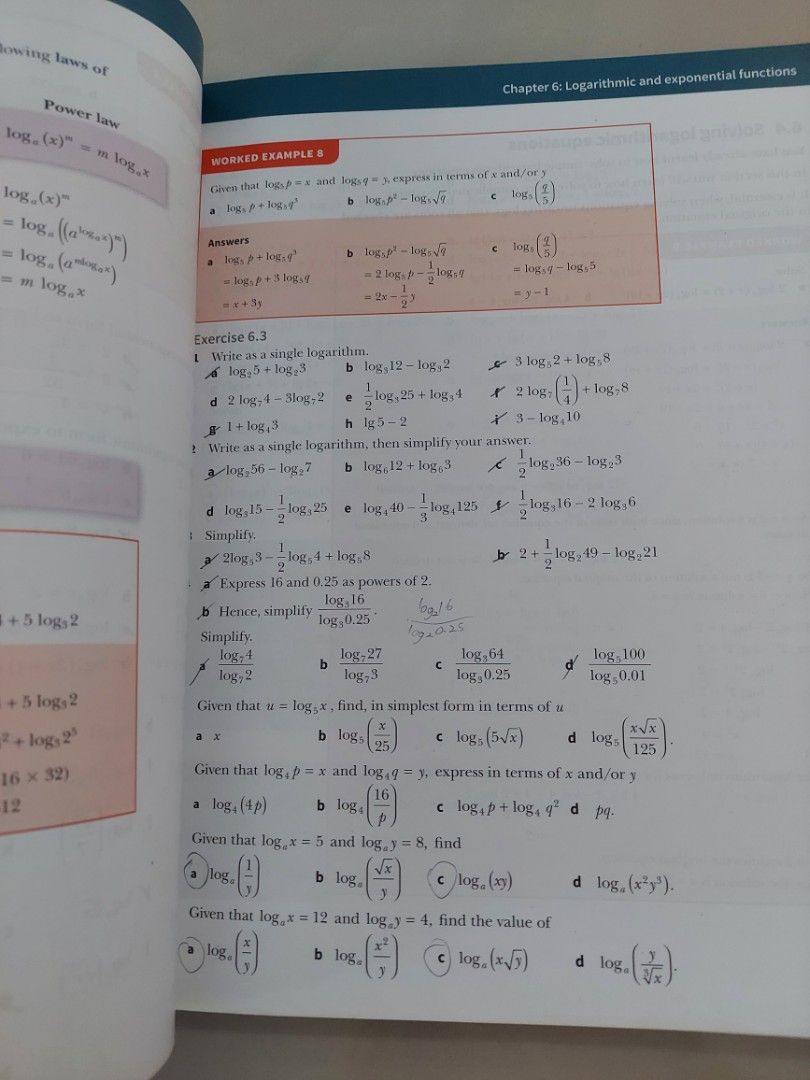 lowing laws of
Power law
logₐ(x)ᵐ = m logₐx
logₐ(x)ᵐ
= logₐ((a^(logₐx))ᵐ)
= logₐ(a^(m logₐx))
= m logₐx
+ 5 log₃2
+ 5 log₃2
² + log₃2⁵
16 × 32)
12
Chapter 6: Logarithmic and exponential functions
WORKED EXAMPLE 8
Given that log₅p = x and log₅q = y, express in terms of x and/or y
a log₅p + log₅q³ b log₅p² − log₅√q c log₅(q/5)
Answers
a log₅p + log₅q³ b log₅p² − log₅√q c log₅(q/5)
= log₅p + 3 log₅q = 2 log₅p − 1/2 log₅q = log₅q − log₅5
= x + 3y = 2x − 1/2 y = y − 1
Exercise 6.3
1 Write as a single logarithm.
a log₂5 + log₂3 b log₃12 − log₃2 c 3 log₅2 + log₅8
d 2 log₇4 − 3log₇2 e 1/2 log₃25 + log₃4 f 2 log₇(1/4) + log₇8
g 1 + log₄3 h lg 5 − 2 i 3 − log₄10
2 Write as a single logarithm, then simplify your answer.
a log₂56 − log₂7 b log₆12 + log₆3 c 1/2 log₂36 − log₂3
d log₃15 − 1/2 log₃25 e log₄40 − 1/3 log₄125 f 1/2 log₃16 − 2 log₃6
Simplify.
a 2log₅3 − 1/2 log₅4 + log₅8 b 2 + 1/2 log₂49 − log₂21
a Express 16 and 0.25 as powers of 2.
b Hence, simplify log₃16/log₃0.25. log₂16/log₂0.25
Simplify.
a log₇4/log₇2 b log₇27/log₇3 c log₃64/log₃0.25 d log₅100/log₅0.01
Given that u = log₅x, find, in simplest form in terms of u
a x b log₅(x/25) c log₅(5√x) d log₅(x√x/125).
Given that log₄p = x and log₄q = y, express in terms of x and/or y
a log₄(4p) b log₄(16/p) c log₄p + log₄ q² d pq.
Given that logₐx = 5 and logₐy = 8, find
a logₐ(1/y) b logₐ(√x/y) c logₐ(xy) d logₐ(x²y³).
Given that logₐx = 12 and logₐy = 4, find the value of
a logₐ(x/y) b logₐ(x²/y) c logₐ(x√y) d logₐ(y/∛x).